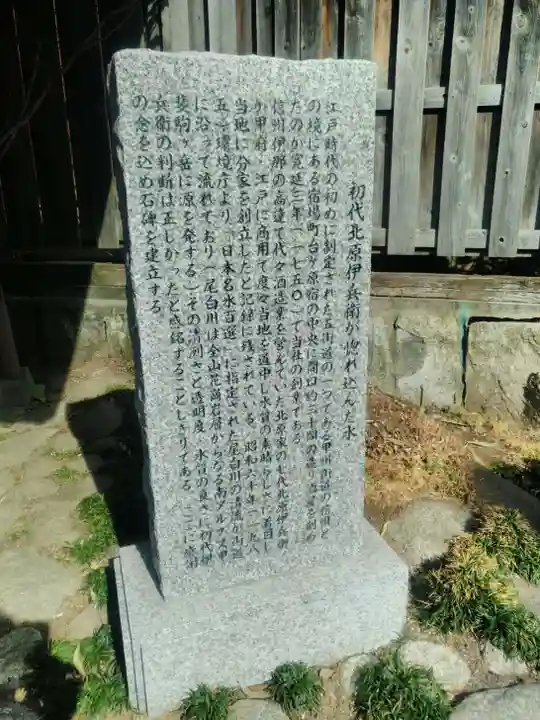 初代北原伊兵衛が惚れ込んだ水
江戸時代の初めに制定された五街道の一つである甲州街道の宿場と
の境にある宿場町台ケ原宿の中央に間口約二十間の
たのが寛延三年（一七五〇）で当社の創業である
信州伊那の高遠で代々酒造業を営んでいた北原家の七代北原伊兵衛
が甲府・江戸に商用で度々当地を道中し水質の素晴らしさに着目し
当地に分家を創立したと記録に残されている。昭和六十年（一九八
五）環境庁より「日本名水百選」に指定された尾白川の清流が街道
に沿って流れており（尾白川は全山花崗岩層からなる南アルプス甲
斐駒ヶ岳に源を発する）その清冽さと透明度、水質の良さに初代伊
兵衛の判断は正しかったと感銘することしきりである。ここに
の念を込め石碑を建立する